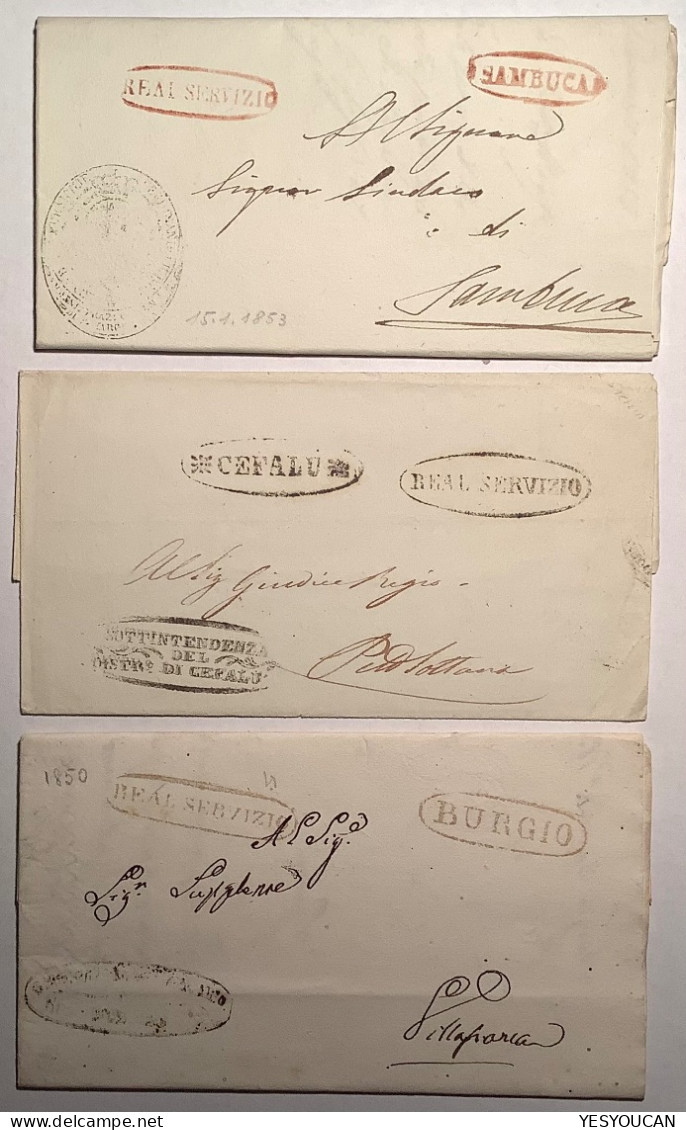 REAL SERVIZIO
SAMBUCA
Signor Sindaco
di
Sambuca
15.1.1853
CEFALÙ
REAL SERVIZIO
Al Sig Giudice Regio
SOTTINTENDENZA
DEL
DISTRº. DI CEFALÙ
1850
REAL SERVIZIO
BURGIO
Al Sigº
Sigʳ Supplente
Villafranca
YESYOUCAN